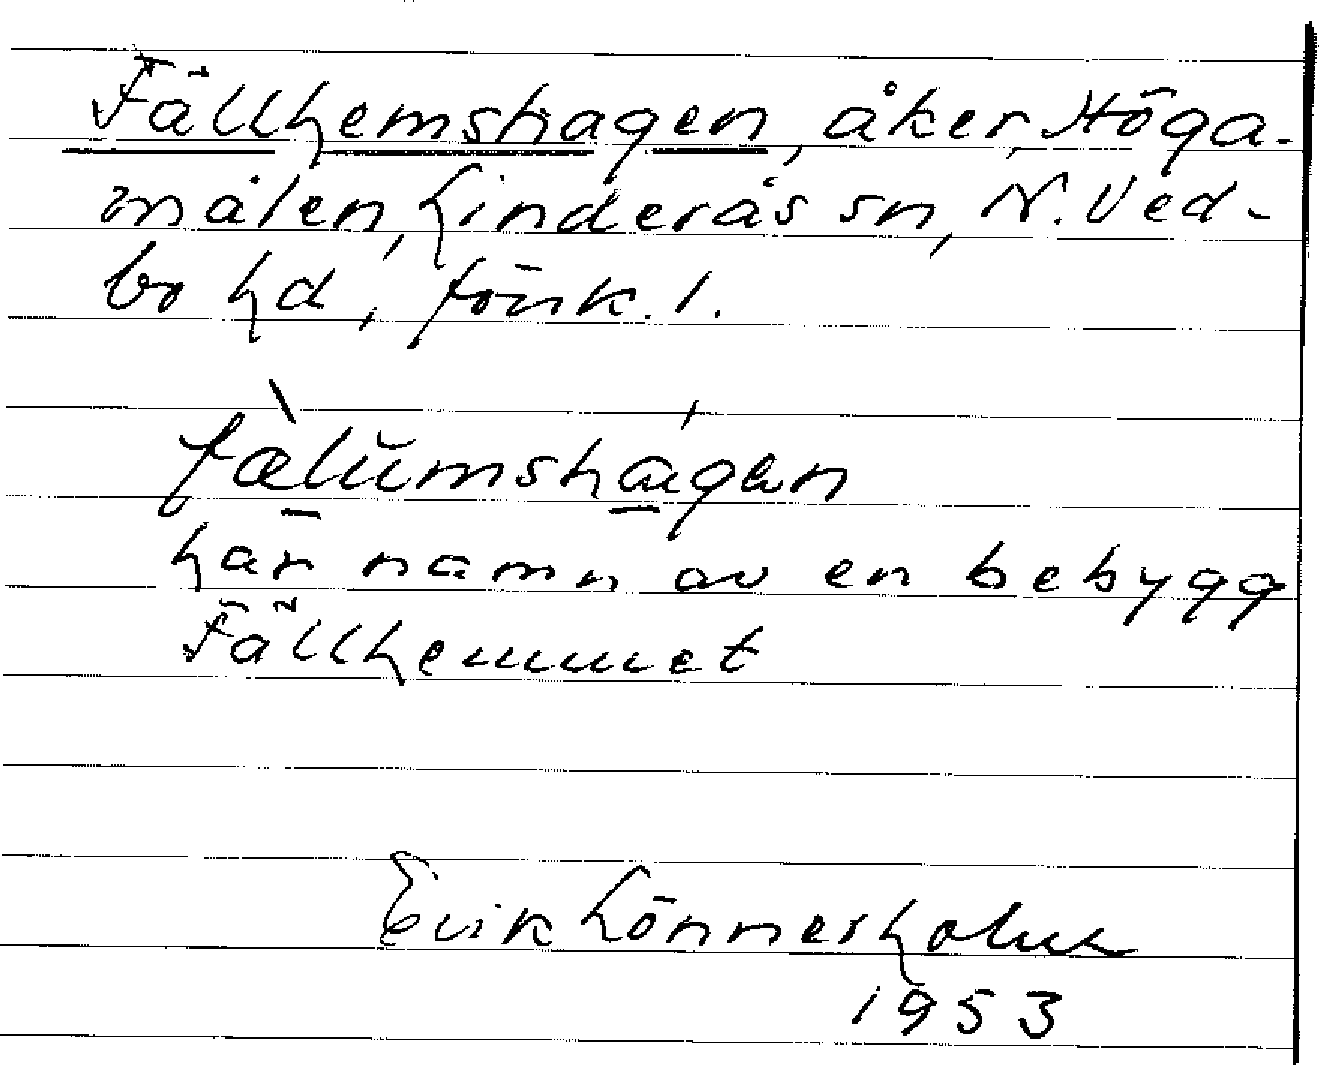 Fällhemshagen, åker, Höga-
målen, Linderås sn, N. Ved-
bo hd, Jönk. l.
fæ̀lŭmshágen
har namn av en bebygg
Fällhemmet
Erik Lönnerholm
1953